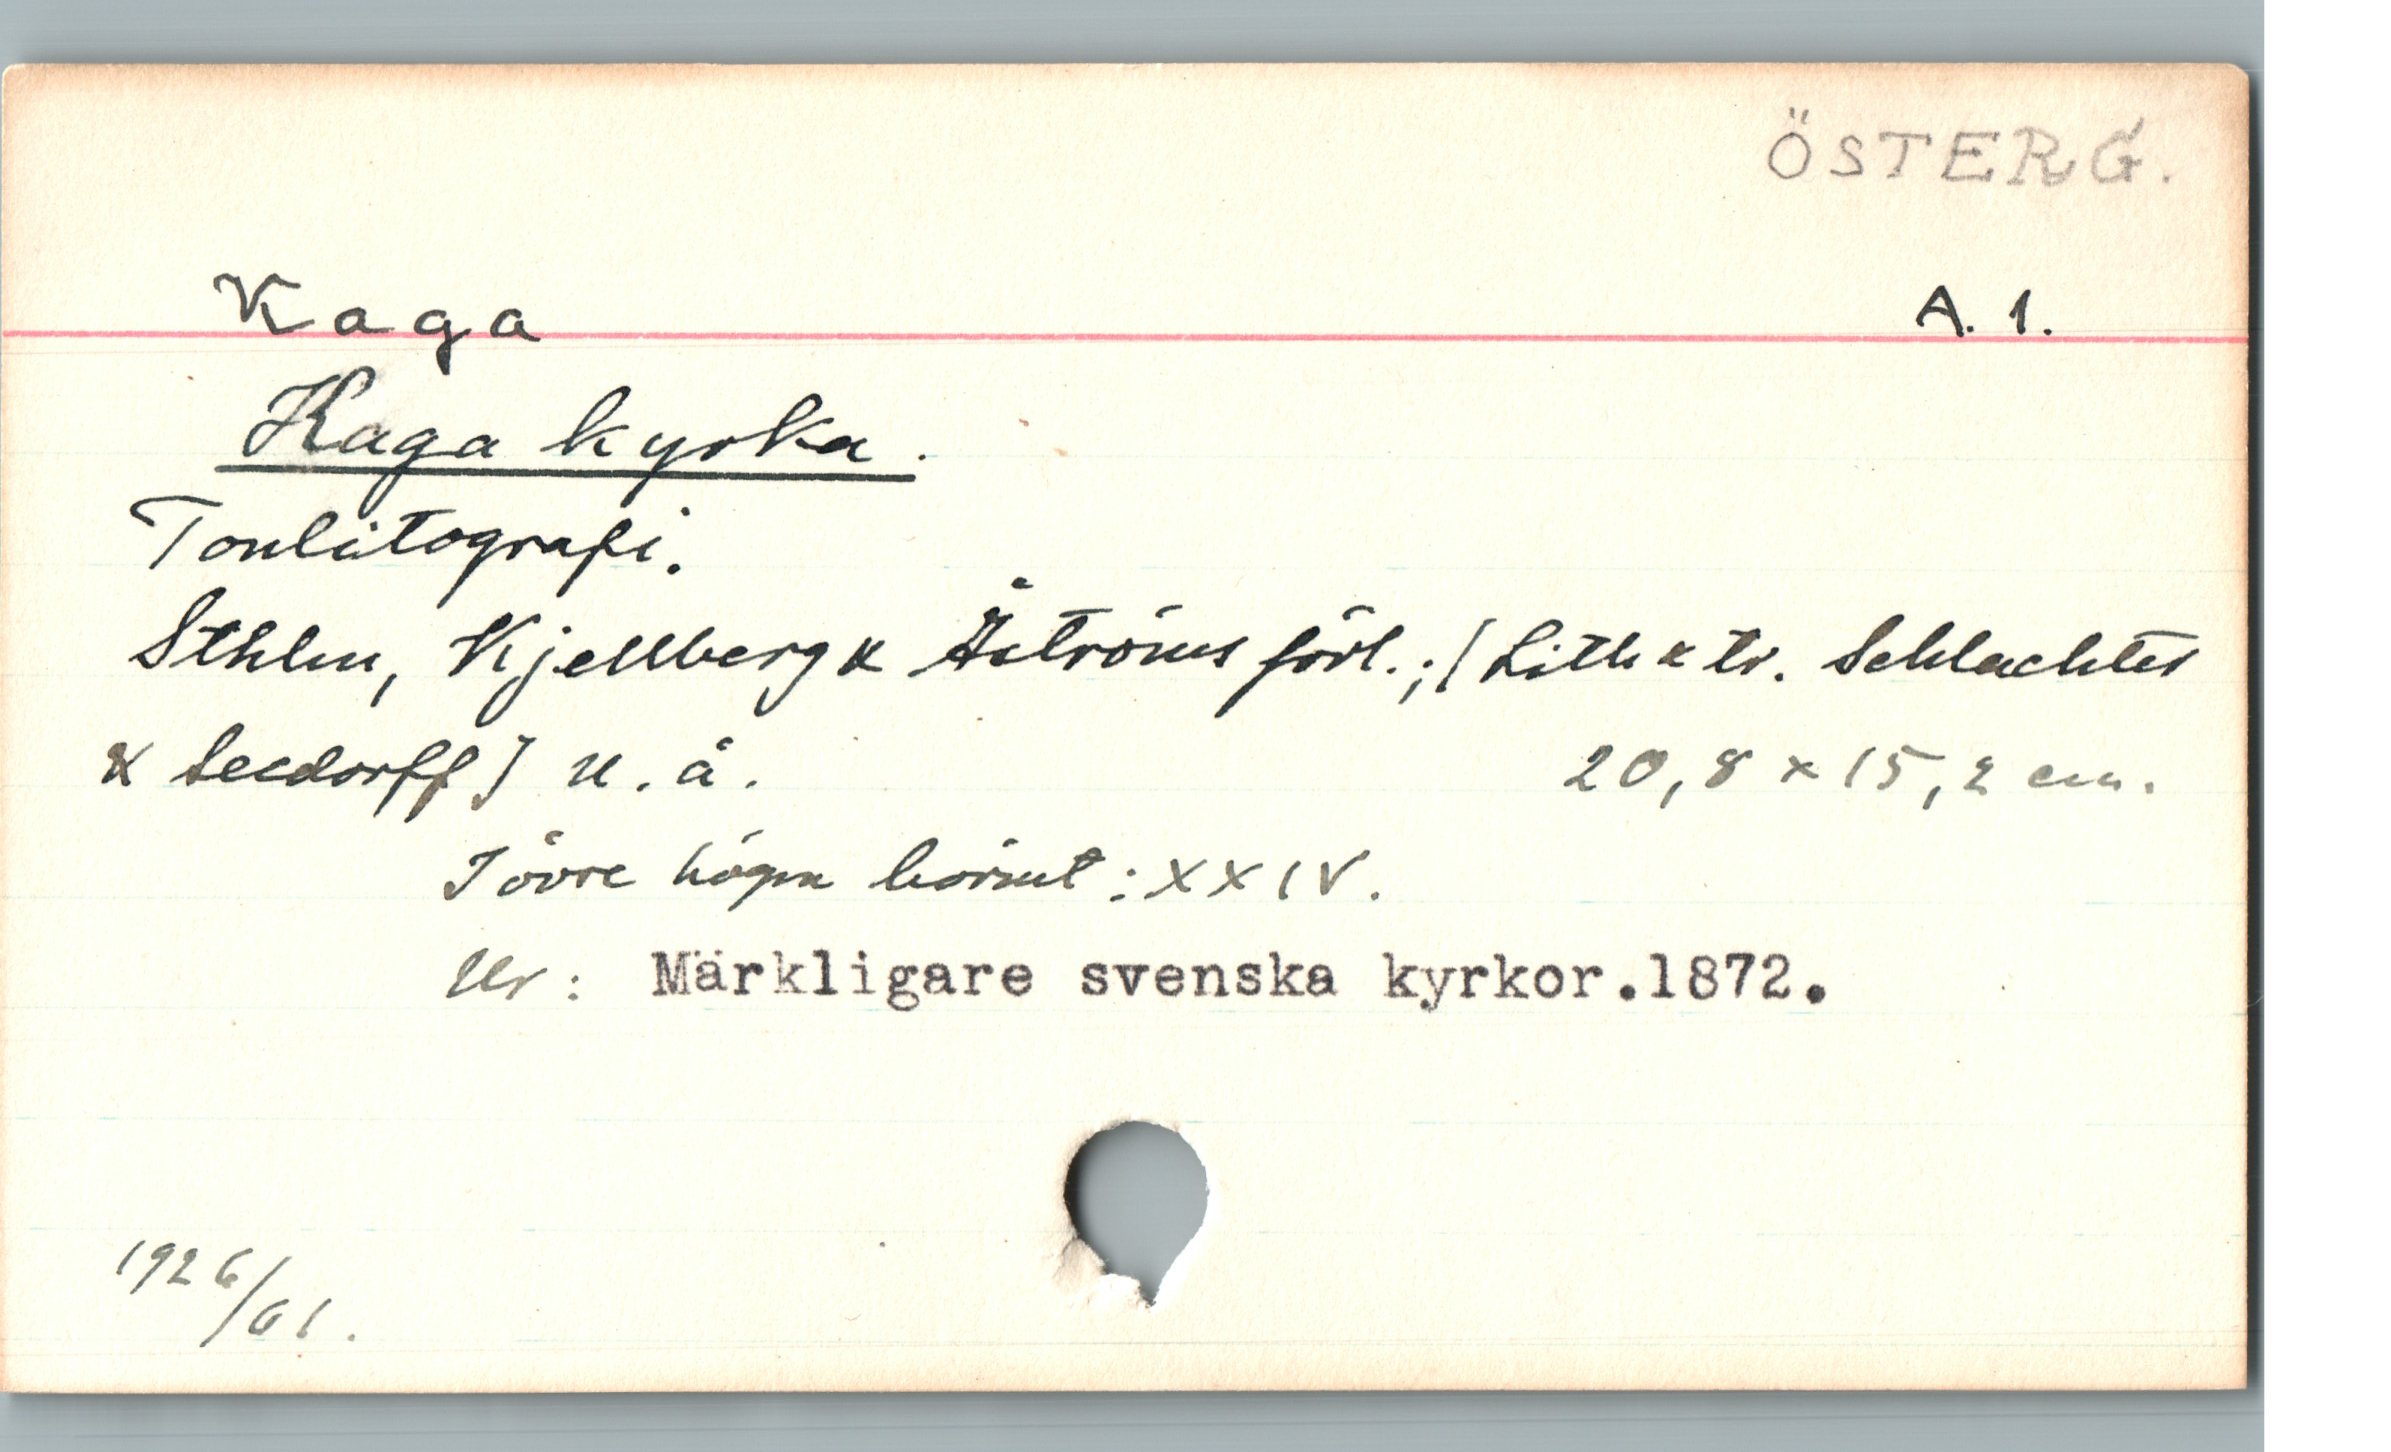 ÖSTERG.
Kaga A. 1.
Kaga kyrka.
Tonlitografi.
Sthlm, Kjellberg & Åströms förl.; [Lith & tr. Schlachter
& Seedorff] u. å. 20,8 x 15,2 cm.
I övre högra hörnet: XXIV.
Ur: Märkligare svenska kyrkor.1872.
1926/61.